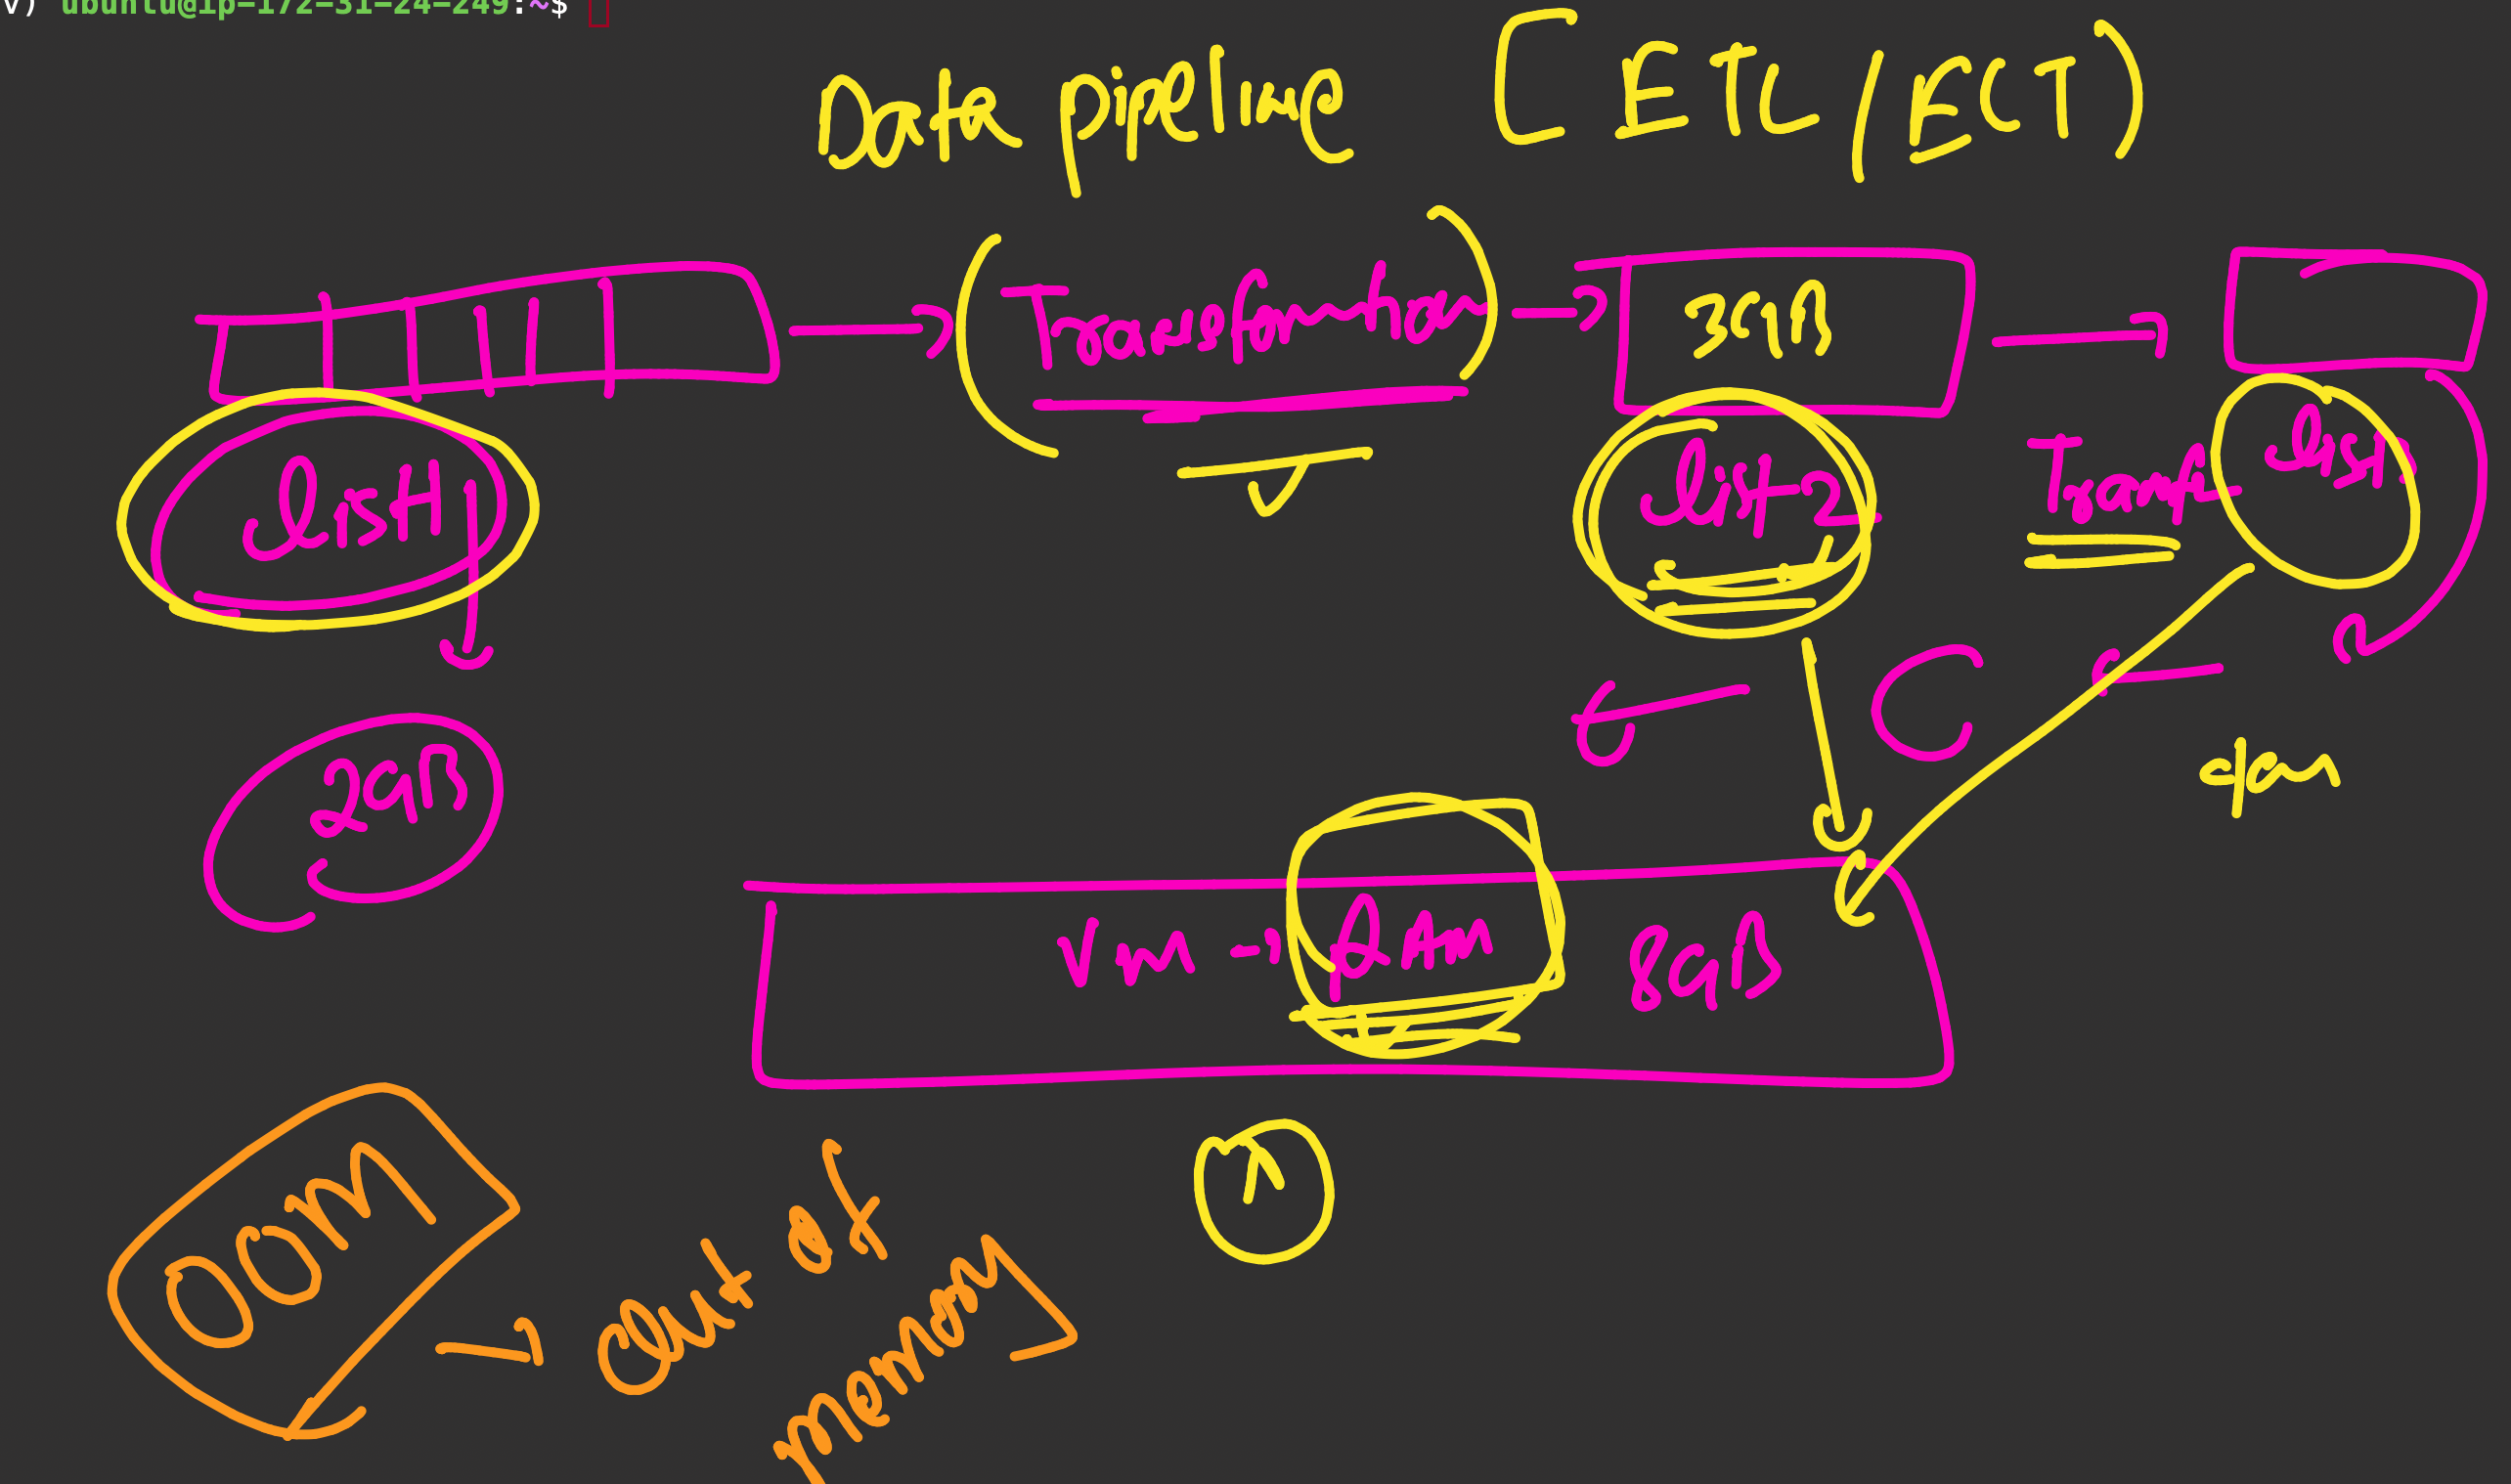 v) ubuntu@ip-172-31-24-249:~$
Data pipeline [ETL/ELT)
Transformation
3GB
list1
list2
Transf
list
2GB
C
VM → RAM 8GB
1
OOM
→ out of
memory